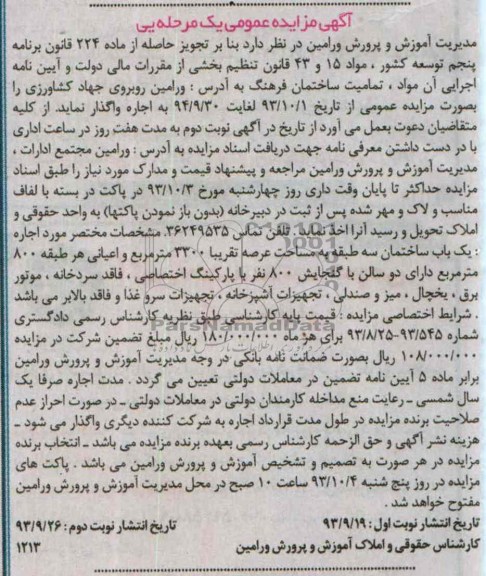 آگهی مزایده عمومی یک مرحله یی
مدیریت آموزش و پرورش ورامین در نظر دارد بنا بر تجویز حاصله از ماده ۲۲۴ قانون برنامه
پنجم توسعه کشور ، مواد ۱۵ و ۴۳ قانون تنظیم بخشی از مقررات مالی دولت و آیین نامه
اجرایی آن مواد ، تمامیت ساختمان فرهنگ به آدرس : ورامین روبروی جهاد کشاورزی را
بصورت مزایده عمومی از تاریخ ۹۳/۱۰/۱ لغایت ۹۴/۹/۳۰ به اجاره واگذار نماید. از کلیه
متقاضیان دعوت بعمل می آورد از تاریخ در آگهی نوبت دوم به مدت هفت روز در ساعت اداری
با در دست داشتن معرفی نامه جهت دریافت اسناد مزایده به آدرس : ورامین مجتمع ادارات ،
مدیریت آموزش و پرورش ورامین مراجعه و پیشنهاد قیمت و مدارک مورد نیاز را طبق اسناد
مزایده حداکثر تا پایان وقت داری روز چهارشنبه مورخ ۹۳/۱۰/۳ در پاکت در بسته با لفاف
مناسب و لاک و مهر شده پس از ثبت در دبیرخانه (بدون باز نمودن پاکتها) به واحد حقوقی و
املاک تحویل و رسید آنرا اخذ نمایند. تلفن تماس ۳۶۲۴۹۵۳۵. مشخصات مختصر مورد اجاره
: یک باب ساختمان سه طبقه به مساحت عرصه تقریبا ۳۳۰۰ مترمربع و اعیانی هر طبقه ۸۰۰
مترمربع دارای دو سالن با گنجایش ۸۰۰ نفر با پارکینگ اختصاصی ، فاقد سردخانه ، موتور
برق ، یخچال ، میز و صندلی ، تجهیزات آشپزخانه ، تجهیزات سرو غذا و فاقد بالابر می باشد
. شرایط اختصاصی مزایده : قیمت پایه کارشناسی طبق نظریه کارشناس رسمی دادگستری
شماره ۹۳/۵۴۵-۹۳/۸/۲۵ برای هر ماه ۱۸۰/۰۰۰/۰۰۰ ریال مبلغ تضمین شرکت در مزایده
۱۰۸/۰۰۰/۰۰۰ ریال بصورت ضمانت نامه بانکی در وجه مدیریت آموزش و پرورش ورامین
برابر ماده ۵ آیین نامه تضمین در معاملات دولتی تعیین می گردد . مدت اجاره صرفا یک
سال شمسی ـ رعایت منع مداخله کارمندان دولتی در معاملات دولتی ـ در صورت احراز عدم
صلاحیت برنده مزایده در طول مدت قرارداد اجاره به شرکت کننده دیگری واگذار می شود ـ
هزینه نشر آگهی و حق الزحمه کارشناس رسمی بعهده برنده مزایده می باشد ـ انتخاب برنده
مزایده در هر صورت به تصمیم و تشخیص آموزش و پرورش ورامین می باشد . پاکت های
مزایده در روز پنج شنبه ۹۳/۱۰/۴ ساعت ۱۰ صبح در محل مدیریت آموزش و پرورش ورامین
مفتوح خواهد شد .
تاریخ انتشار نوبت اول : ۹۳/۹/۱۹ تاریخ انتشار نوبت دوم : ۹۳/۹/۲۶
کارشناس حقوقی و املاک آموزش و پرورش ورامین ۱۲۱۳
ParsNamadData